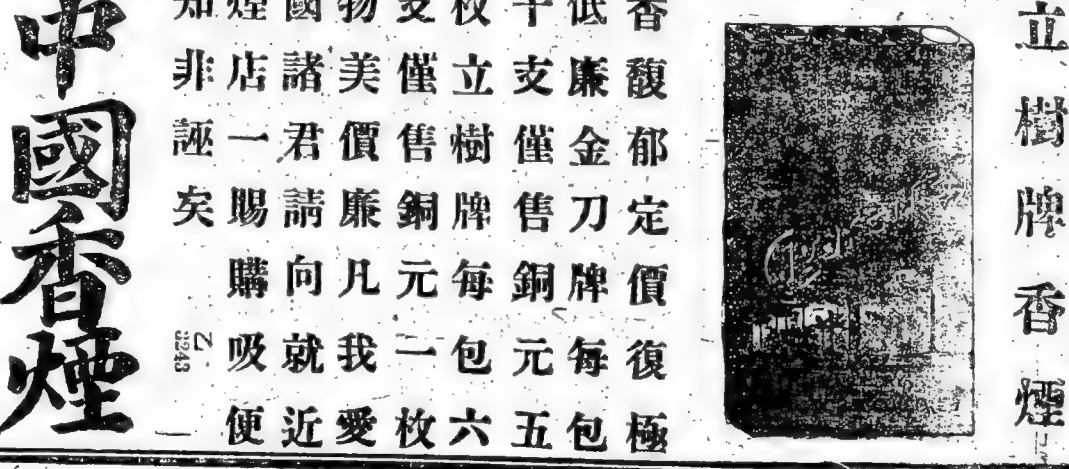 立樹牌香煙
香馥郁定價復極
低廉金刀牌每包
十支僅售銅元五
枚立樹牌每包六
支僅售銅元一枚
物美價廉凡我愛
國諸君請向就近
煙店一賜購吸便
知非誣矣
乙
中國香煙